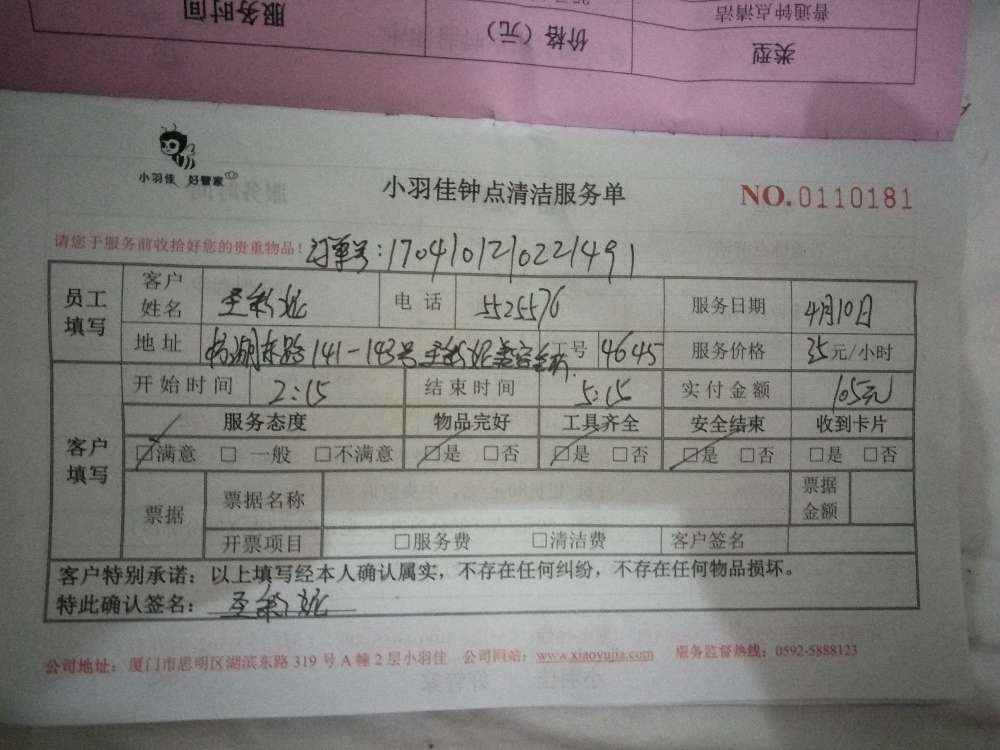 服务时间 价格（元） 普通钟点清洁
类型
小羽佳 好管家
小羽佳钟点清洁服务单
NO.0110181
请您于服务前收拾好您的贵重物品！订单号:17041012102214​91
员工填写 客户姓名 圣彩妮 电话 5525576 服务日期 4月10日
地址 东路141-143号圣彩妮美容 工号 4645 服务价格 35元/小时
客户填写 开始时间 2:15 结束时间 5:15 实付金额 105元
服务态度 物品完好 工具齐全 安全结束 收到卡片
☑满意 □一般 □不满意 ☑是 □否 ☑是 □否 ☑是 □否 □是 □否
票据 票据名称 票据金额
开票项目 □服务费 □清洁费 客户签名
客户特别承诺：以上填写经本人确认属实，不存在任何纠纷，不存在任何物品损坏。
特此确认签名：圣彩妮
公司地址：厦门市思明区湖滨东路319号A幢2层小羽佳 公司网站：www.xiaoyujia.com 服务监督热线：0592-5888123